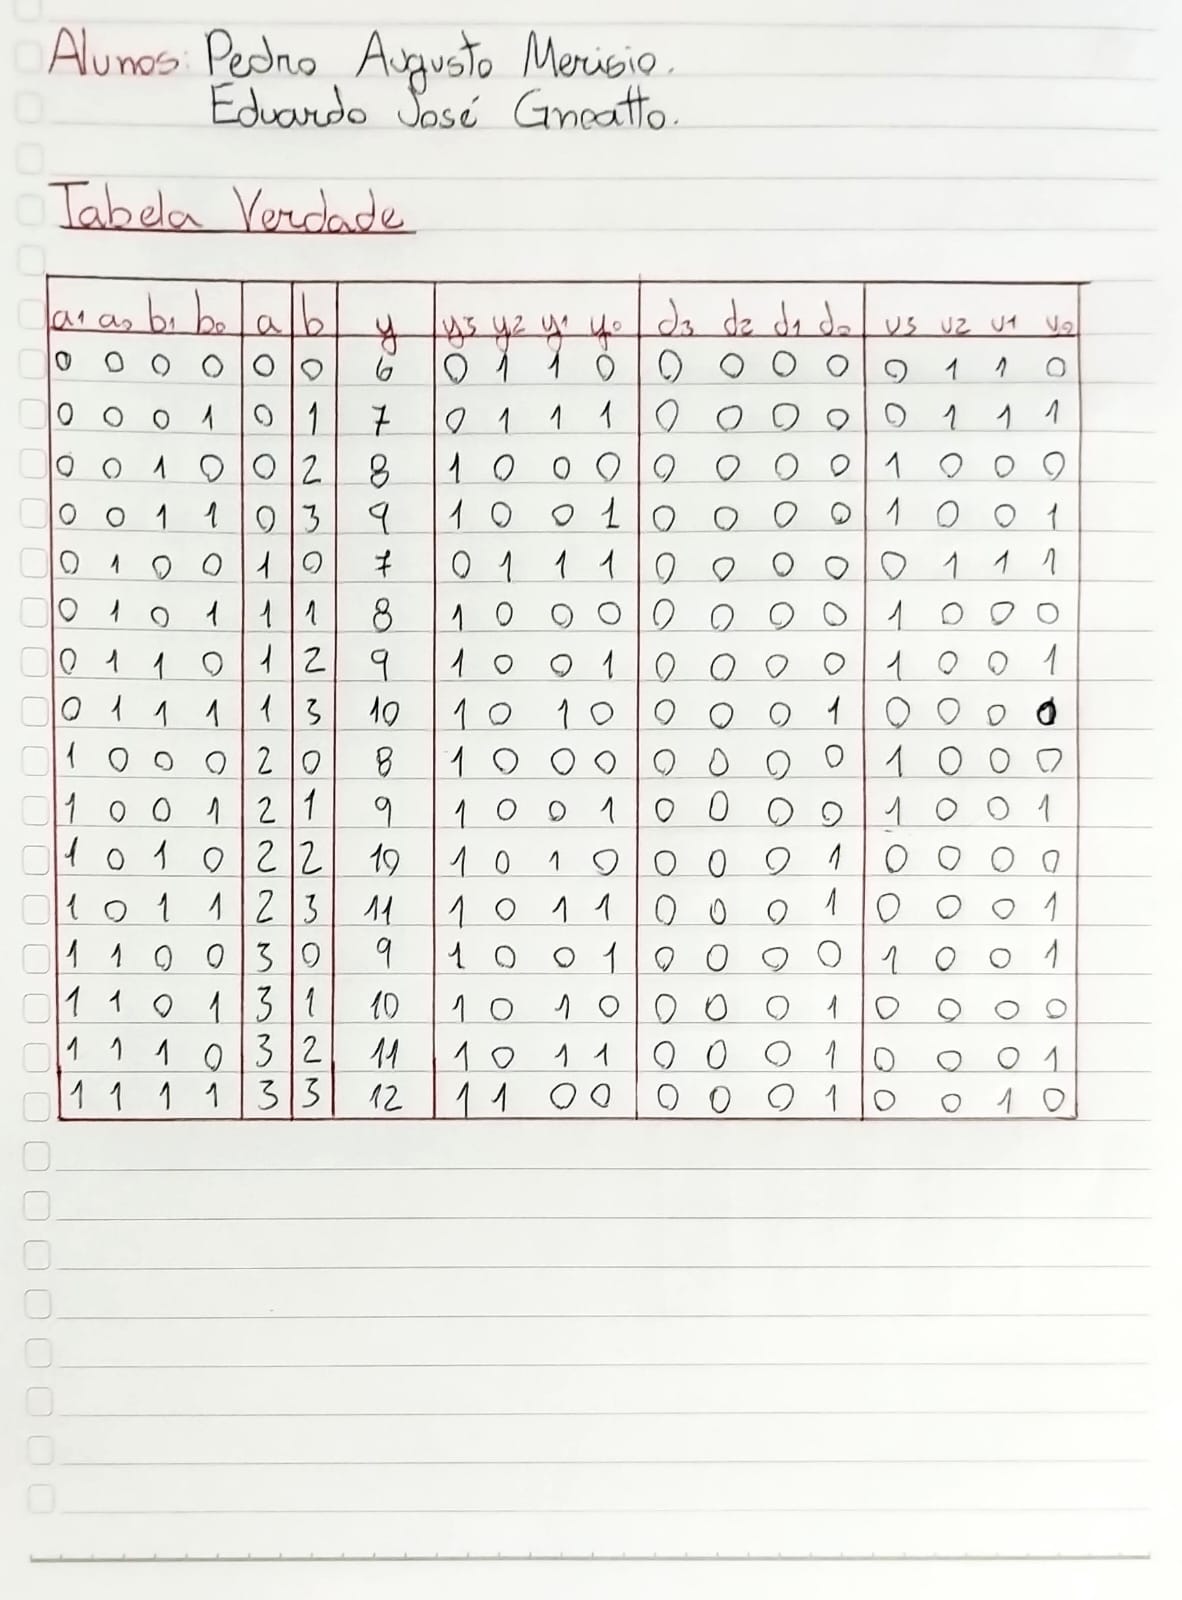 Alunos: Pedro Augusto Merisio.
Eduardo José Gneatto.
Tabela Verdade
a1 a0 b1 b0 a b y y3 y2 y1 y0 d3 d2 d1 d0 v3 v2 v1 v0
0 0 0 0 0 0 6 0 1 1 0 0 0 0 0 0 1 1 0
0 0 0 1 0 1 7 0 1 1 1 0 0 0 0 0 1 1 1
0 0 1 0 0 2 8 1 0 0 0 0 0 0 0 1 0 0 0
0 0 1 1 0 3 9 1 0 0 1 0 0 0 0 1 0 0 1
0 1 0 0 1 0 7 0 1 1 1 0 0 0 0 0 1 1 1
0 1 0 1 1 1 8 1 0 0 0 0 0 0 0 1 0 0 0
0 1 1 0 1 2 9 1 0 0 1 0 0 0 0 1 0 0 1
0 1 1 1 1 3 10 1 0 1 0 0 0 0 1 0 0 0 0
1 0 0 0 2 0 8 1 0 0 0 0 0 0 0 1 0 0 0
1 0 0 1 2 1 9 1 0 0 1 0 0 0 0 1 0 0 1
1 0 1 0 2 2 10 1 0 1 0 0 0 0 1 0 0 0 0
1 0 1 1 2 3 11 1 0 1 1 0 0 0 1 0 0 0 1
1 1 0 0 3 0 9 1 0 0 1 0 0 0 0 1 0 0 1
1 1 0 1 3 1 10 1 0 1 0 0 0 0 1 0 0 0 0
1 1 1 0 3 2 11 1 0 1 1 0 0 0 1 0 0 0 1
1 1 1 1 3 3 12 1 1 0 0 0 0 0 1 0 0 1 0